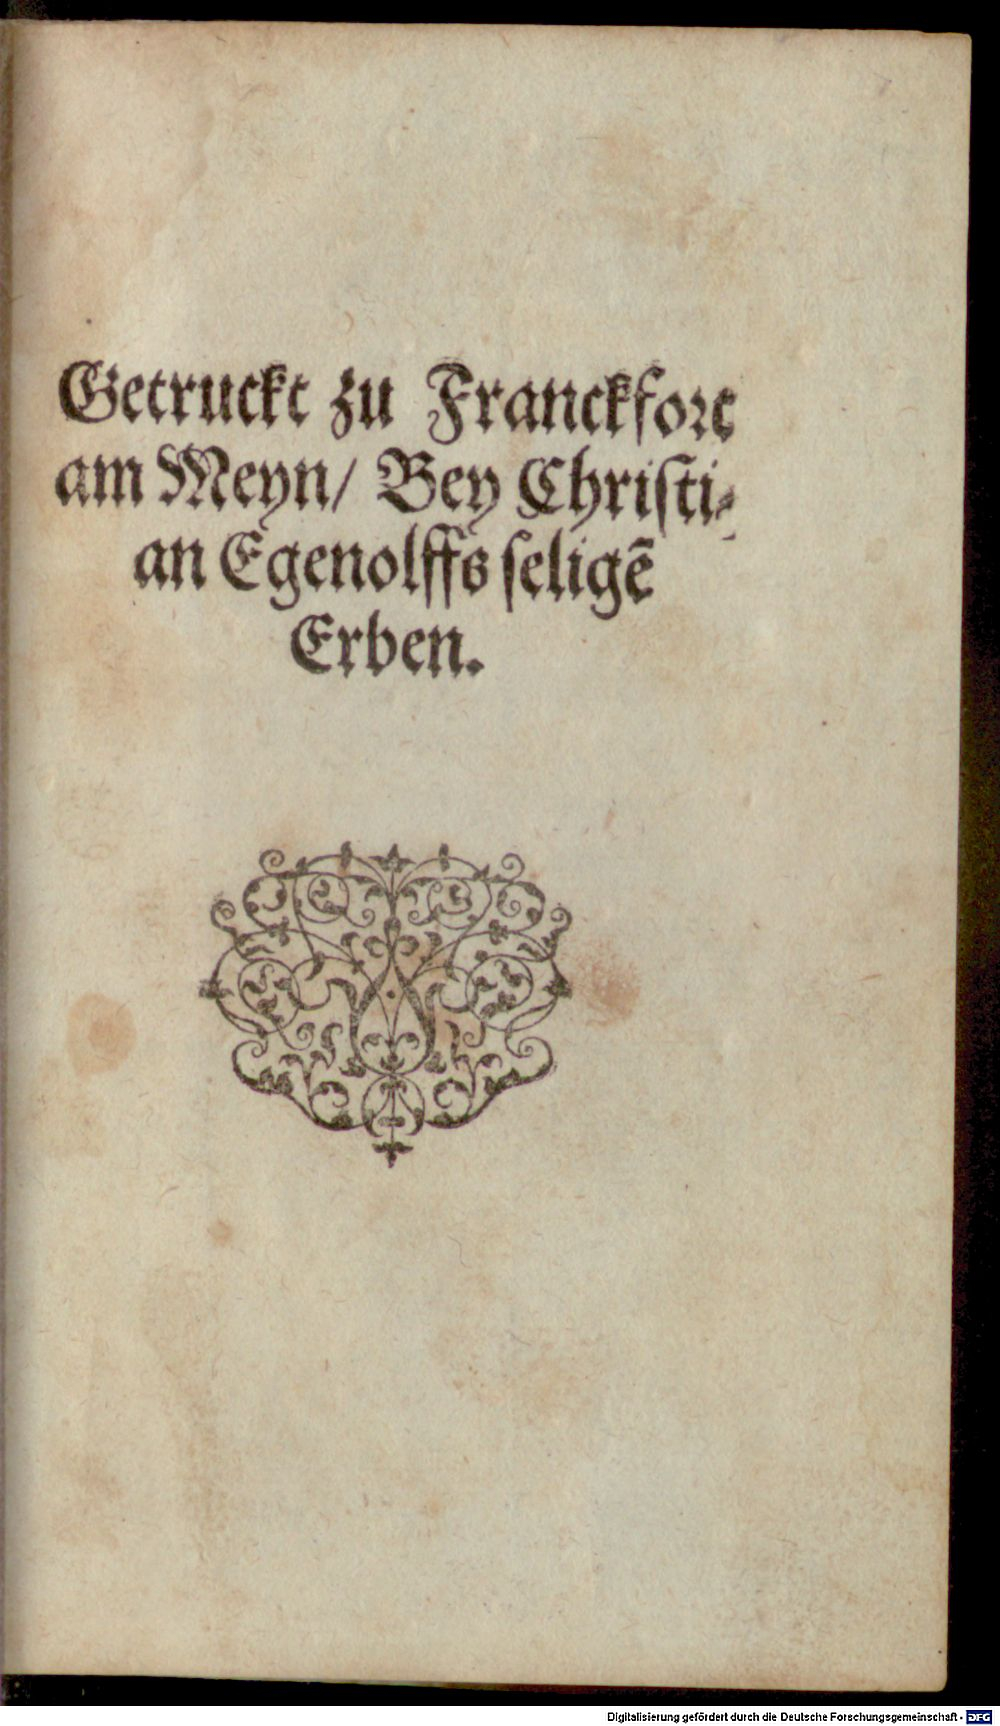 Getruckt zu Franckfort
am Meyn/ Bey Chriſti⸗
an Egenolffs ſeligẽ
Erben.
Digitalisierung gefördert durch die Deutsche Forschungsgemeinschaft - DFG